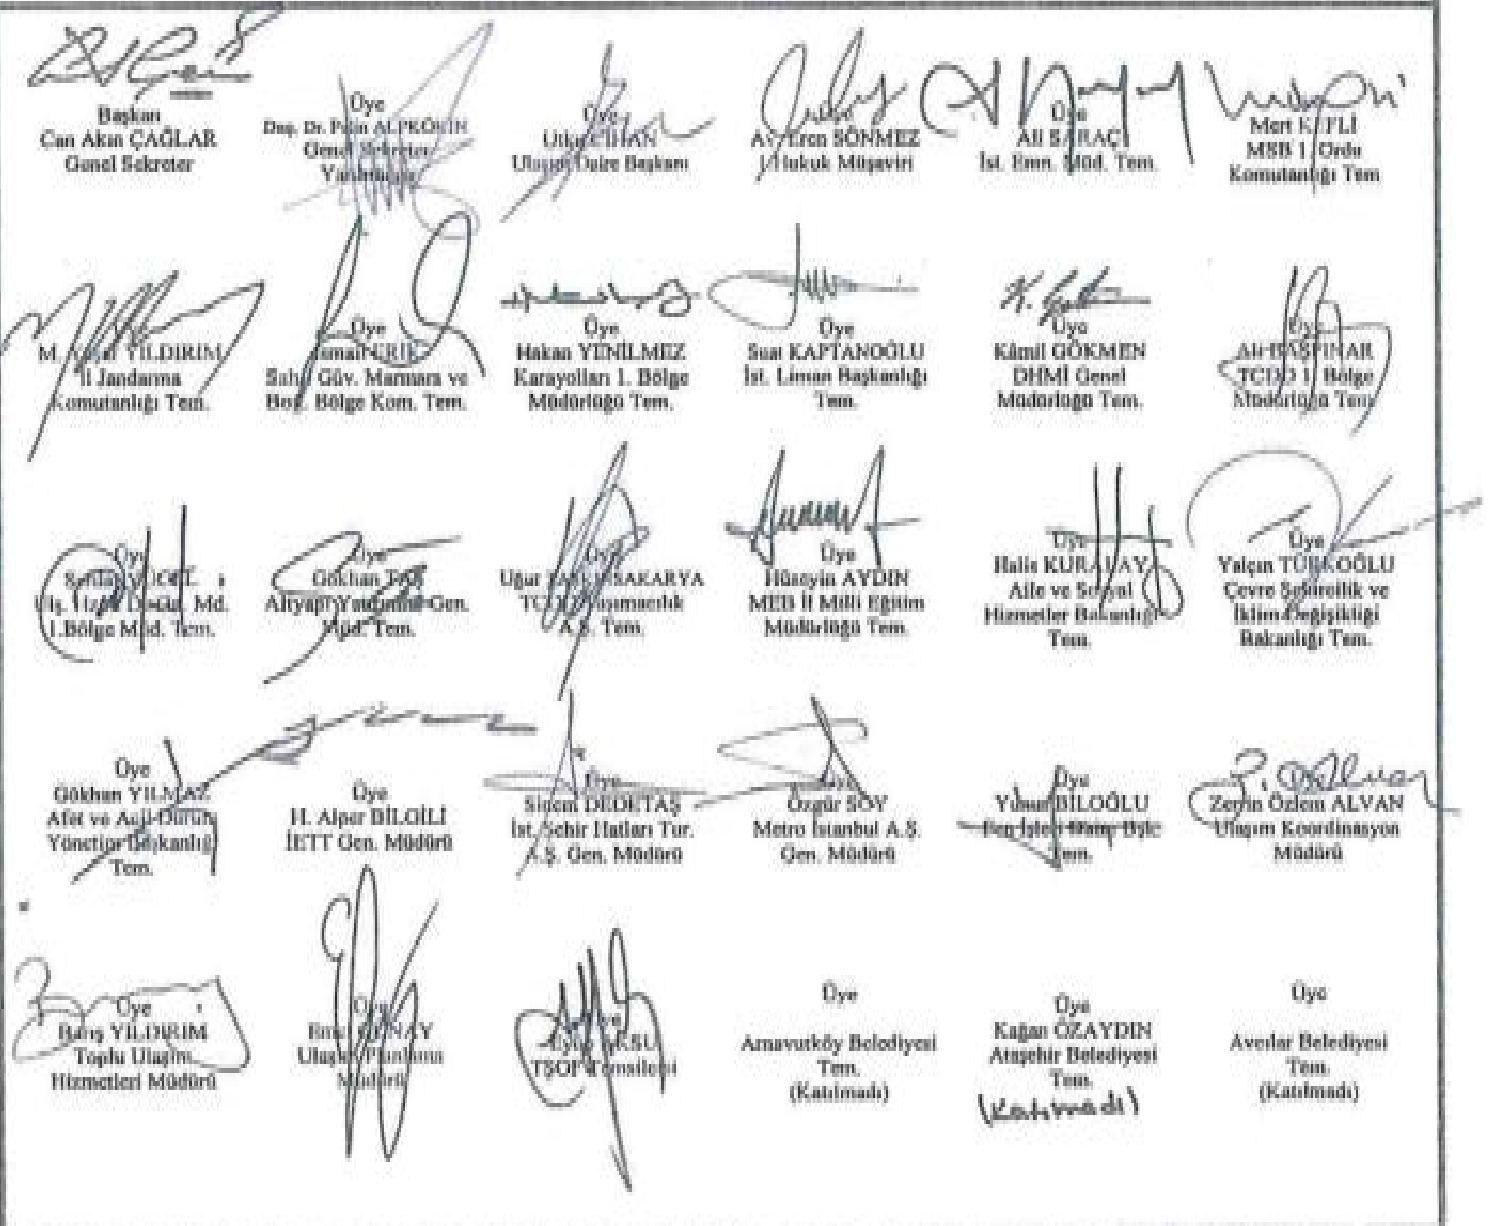 Başkan
Can Akın ÇAĞLAR
Genel Sekreter
Üye
Doç. Dr. Pelin ALPKÖKİN
Genel Sekreter
Üye
Utku CİHAN
Ulaşım Daire Başkanı
Av. Eren SÖNMEZ
I. Hukuk Müşaviri
Üye
Ali SARAÇ
İst. Emn. Müd. Tem.
Mert
MSB 1. Ordu
Komutanlığı Tem
M. YILDIRIM
İl Jandarma
Komutanlığı Tem.
Üye
İsmail
Sahil Güv. Marmara ve
Boğ. Bölge Kom. Tem.
Üye
Hakan YENİLMEZ
Karayolları 1. Bölge
Müdürlüğü Tem.
Üye
Suat KAPTANOĞLU
İst. Liman Başkanlığı
Tem.
K.
Üye
Kâmil GÖKMEN
DHMİ Genel
Müdürlüğü Tem.
Üye
Ali BAŞPINAR
TCDD 1. Bölge
Müdürlüğü Tem
Üye
Serdar YÜCEL
Md.
1.Bölge Müd. Tem.
Üye
Gökhan TAŞ
Altyapı Yatırımları Gen.
Müd. Tem.
Üye
Uğur SAKARYA
TCDD Taşımacılık
A.Ş. Tem.
Üye
Hüseyin AYDIN
MEB İl Milli Eğitim
Müdürlüğü Tem.
Üye
Halis KURALAY
Aile ve Sosyal
Hizmetler Bakanlığı
Tem.
Üye
Yalçın TÜRKOĞLU
Çevre Şehircilik ve
İklim Değişikliği
Bakanlığı Tem.
Üye
Gökhan YILMAZ
Afet ve Acil Durum
Yönetim Başkanlığı
Tem.
Üye
H. Alper BİLGİLİ
İETT Gen. Müdürü
Üye
Sinem DEDETAŞ
İst. Şehir Hatları Tur.
A.Ş. Gen. Müdürü
Üye
Özgür SOY
Metro İstanbul A.Ş.
Gen. Müdürü
Üye
Yunus BİLOĞLU
Tem.
Zerrin Özlem ALVAN
Ulaşım Koordinasyon
Müdürü
Üye
Barış YILDIRIM
Toplu Ulaşım
Hizmetleri Müdürü
Üye
Ulaşım Planlama
Müdürü
AKSU
TŞOF Temsilcisi
Üye
Arnavutköy Belediyesi
Tem.
(Katılmadı)
Üye
Kağan ÖZAYDIN
Ataşehir Belediyesi
Tem.
(Katılmadı)
Üye
Avcılar Belediyesi
Tem.
(Katılmadı)